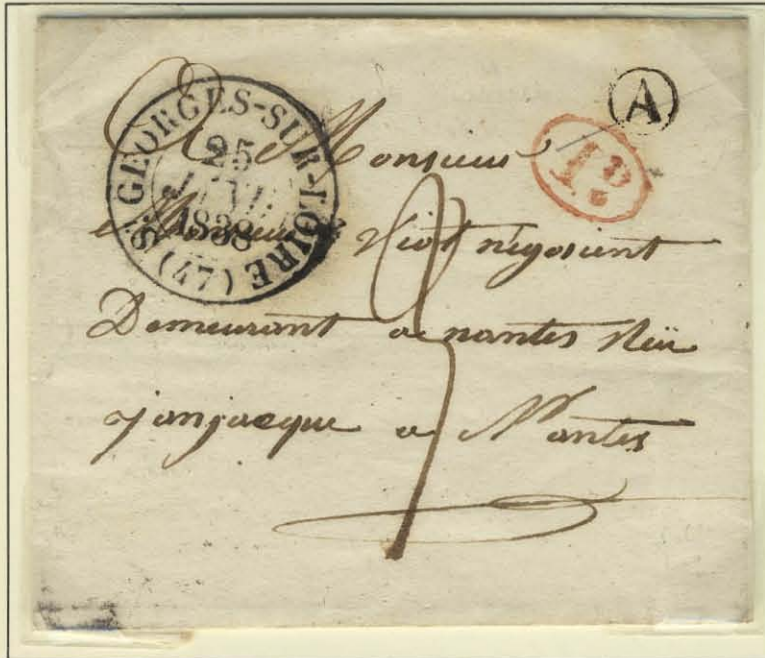 ST GEORGES-SUR-LOIRE (47)
25
JANV.
1838
A
1D
A Monsieur
Monsieur Viot négosient
Demeurant a nantes Rüe
janjacque a Nantes